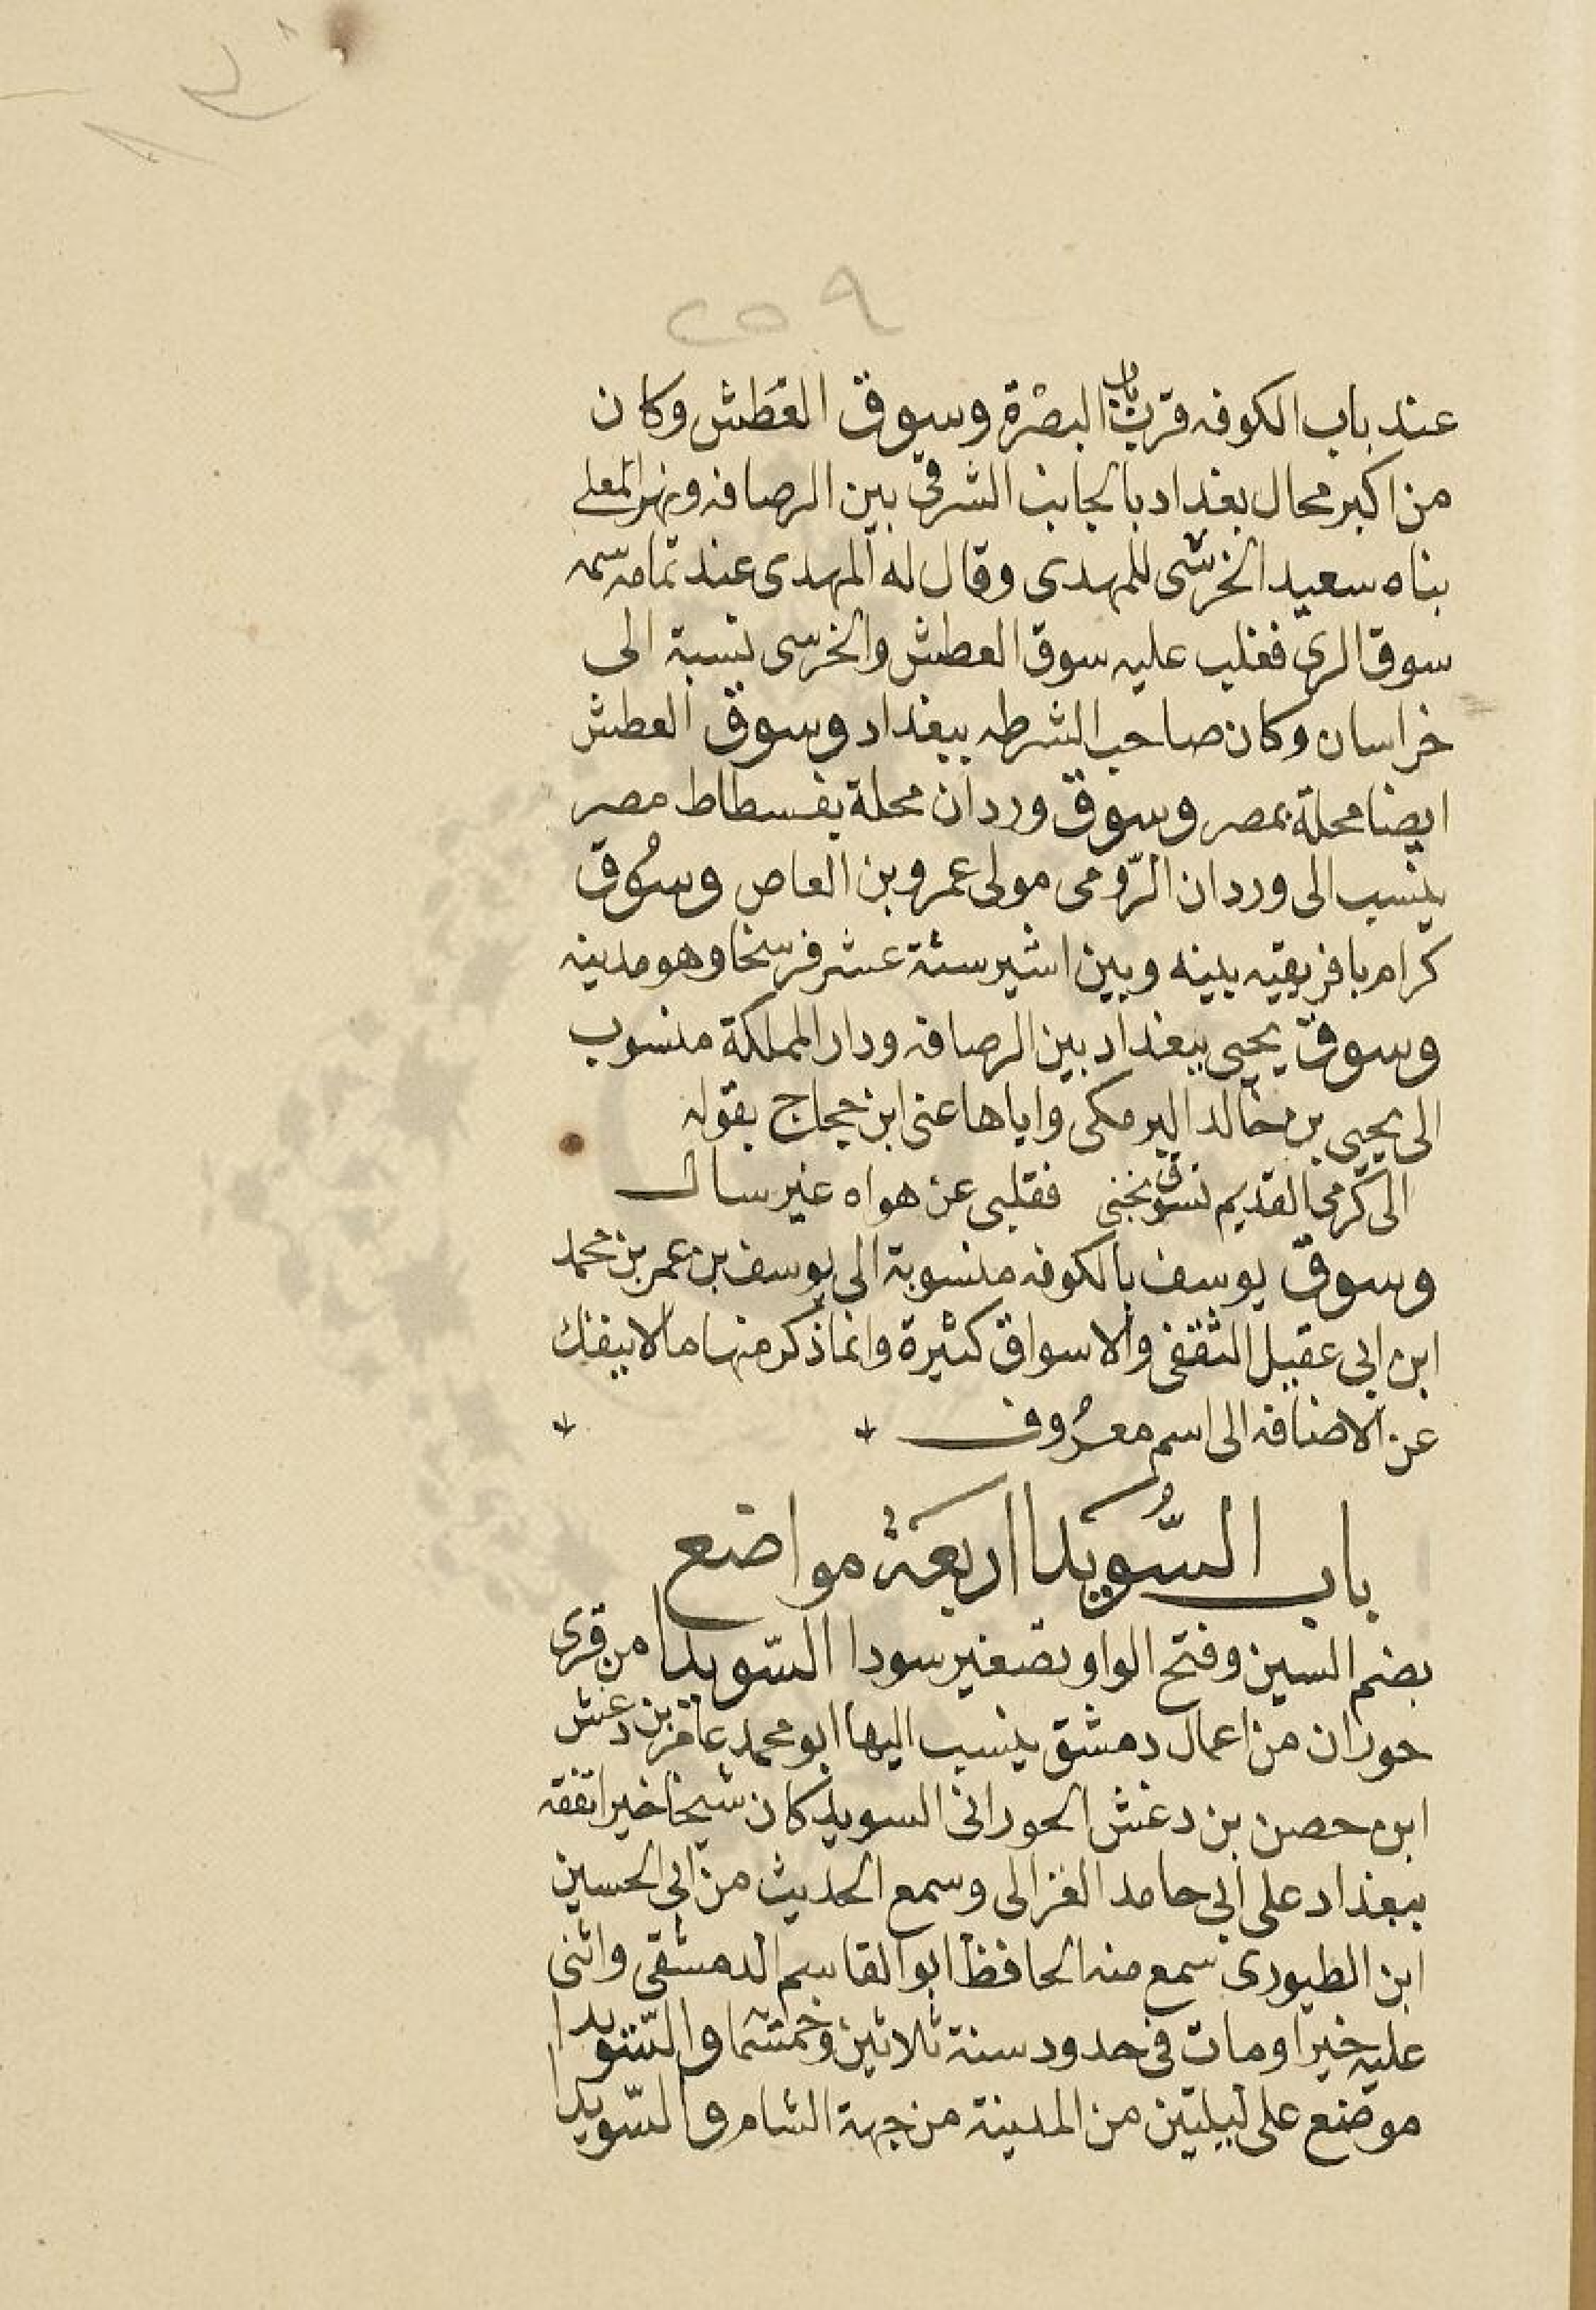 ٢٥٩
عند باب الكوفه قرب باب البصْرة وسوق العَطَش وكان
من اكبر محال بغداد بالجانب الشرقي بين الرصافه ونهر المعلى
بناه سعيد الخرسى للمهدى وقال له المهدى عند تمامه سمه
سوق الرى فغلب عليه سوق العطش والخرسى نسبة الى
خراسان وكان صاحب الشرطه ببغداد وسوق العطش
ايضا محلة بمصر وسوق وردان محلة بفسطاط مصر
ينسب الى وردان الرّومى مولى عمرو بن العاص وسُوق
كرام بافريقيه بينه وبين اشير ستة عشر فرسخا وهو مدينه
وسوق يحيى ببغداد بين الرصافه ودار المملكة منسوب
الى يحيى بن خالد البرمكى واياها عنى ابن حجاج بقوله
الى كرمى القديم تسوقنجنى فقلبى عن هواه غير سال
وسوق يوسف بالكوفه منسوبة الى يوسف بن عمر بن محمد
ابن ابى عقيل الثقفى والاسواق كثيرة وانما ذكر منها مالا ينفك
عن الاضافه الى اسم معرُوف
باب السُّويدا اربعَة مواضع
بضم السين وفتح الواو تصغير سودا السّويدا من قرى
حوران من اعمال دمشق ينسب اليها ابو محمد عامر بن دغش
ابن حصن بن دغش الحورانى السويد كان شيخا خيرا تفقه
ببغداد على ابى حامد الغزالى وسمع الحديث من ابى الحسين
ابن الطيورى سمع منه الحافظ ابو القاسم الدمشقى واثنى
عليه خيرا ومات فى حدود سنة ثلاثين وخمسما والسّويدا
موضع على ليلتين من المدينة من جهة الشام والسّويدا